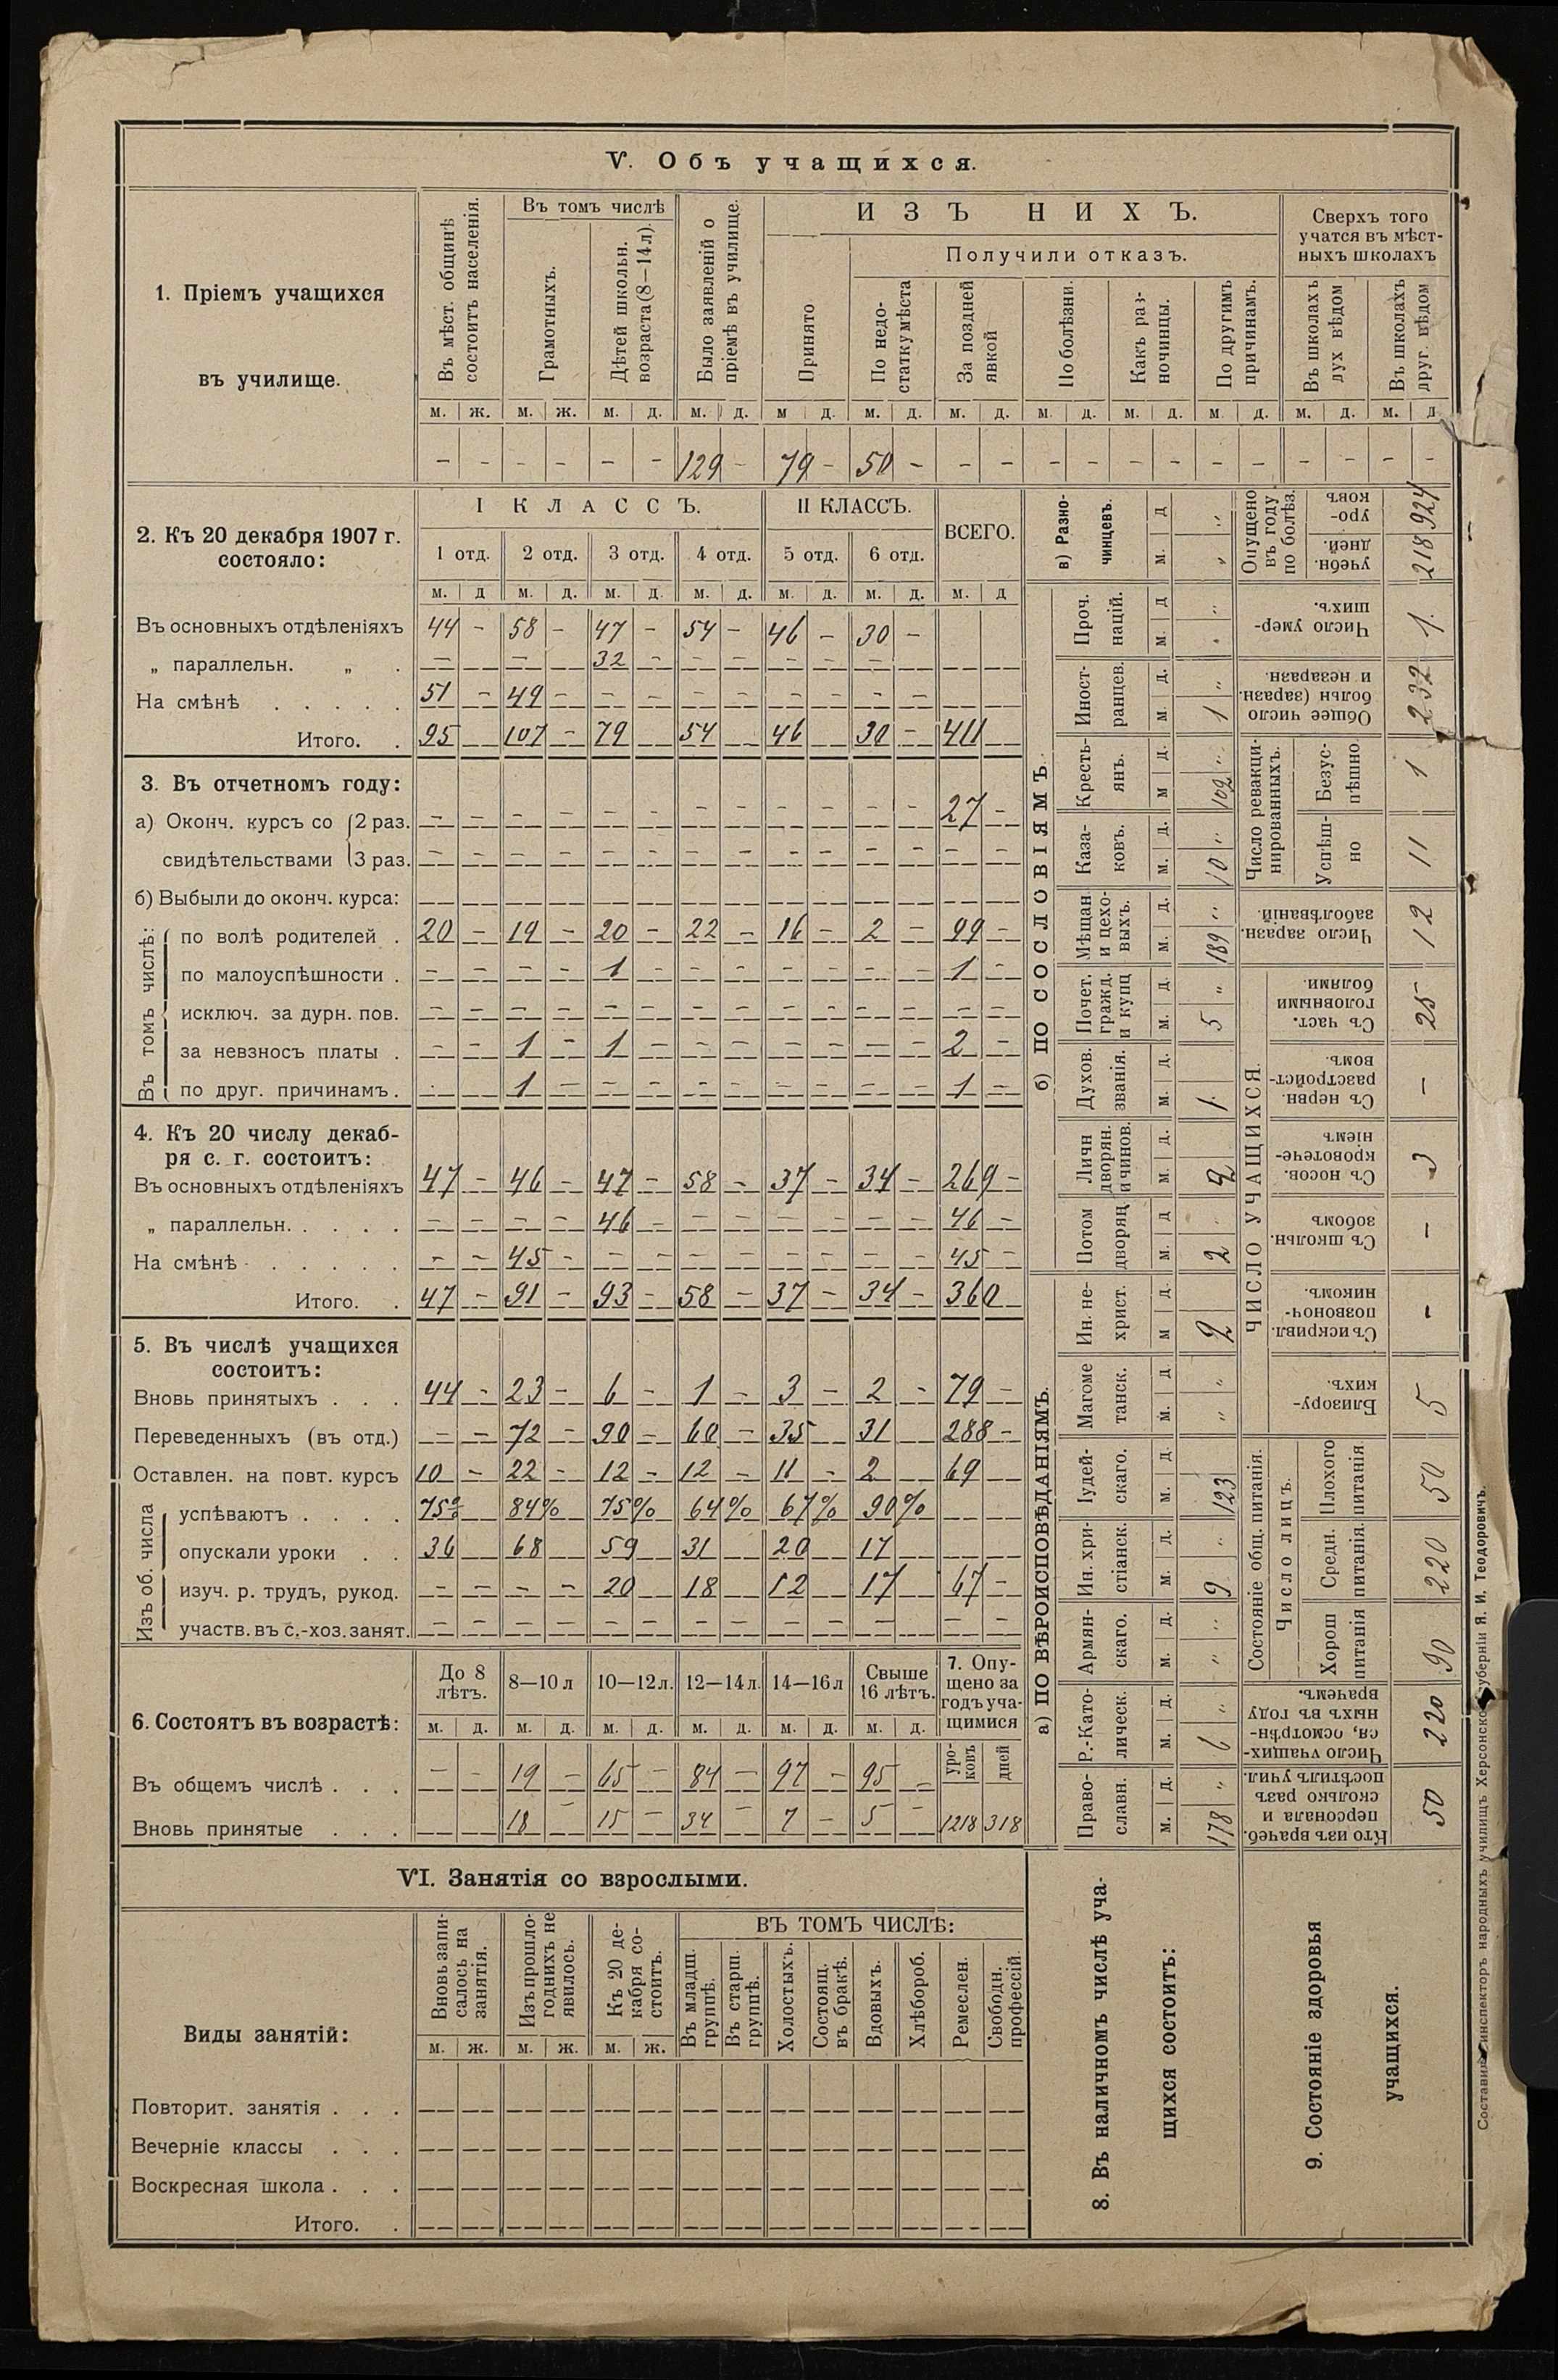 V. Объ учащихся.
1. Пріемъ учащихся
въ училище.
Въ мѣст. общинѣ
состоитъ населенія.
Въ томъ числѣ
Грамотныхъ.
Дѣтей школьн.
возраста (8—14 л).
Было заявленій о
пріемѣ въ училище.
ИЗЪ НИХЪ.
Принято
Получили отказъ.
По недо-
статку мѣста
За поздней
явкой
По болѣзни.
Какъ раз-
ночинцы.
По другимъ
причинамъ.
Сверхъ того
учатся въ мѣст-
ныхъ школахъ
Въ школахъ
дух вѣдом
Въ школахъ
друг. вѣдом
м. ж. м. ж. м. д. м. д. м д. м. д. м. д. м. д. м. д. м д. м. д. м. д
– – – – – – 129 – 79 – 50 – – – – – – – – – – – – –
2. Къ 20 декабря 1907 г.
состояло:
I КЛАССЪ. II КЛАССЪ. ВСЕГО.
1 отд. 2 отд. 3 отд. 4 отд. 5 отд. 6 отд.
м. д м. д. м. д. м. д. м. д. м. д. м. д
Въ основныхъ отдѣленіяхъ 44 – 58 – 47 – 54 – 46 – 30 –
„ параллельн. „ . – – 32 – – – – – –
На смѣнѣ . . . . . 51 – 49 – – – – – – – – –
Итого. . 95 107 – 79 54 46 30 – 411
3. Въ отчетномъ году:
а) Оконч. курсъ со 2 раз. – – – – – – – – – – – – 27 –
свидѣтельствами 3 раз. – – – – – – – – – – – – – –
б) Выбыли до оконч. курса:
Въ томъ числѣ:
по волѣ родителей . 20 – 19 – 20 – 22 – 16 – 2 – 99 –
по малоуспѣшности . – – – – 1 – – – – – – – 1 –
исключ. за дурн. пов. – – – – – – – – – – – – – –
за невзносъ платы . – – 1 – 1 – – – – – – – 2 –
по друг. причинамъ . 1 – – – – – – – – – 1 –
4. Къ 20 числу декаб-
ря с. г. состоитъ:
Въ основныхъ отдѣленіяхъ 47 – 46 – 47 – 58 – 37 – 34 – 269 –
„ параллельн. . . . . – – – – 46 – – – – – – – 46 –
На смѣнѣ . . . . . . – – 45 – – – – – – – – – 45 –
Итого. . 47 – 91 – 93 – 58 – 37 – 34 – 360
5. Въ числѣ учащихся
состоитъ:
Вновь принятыхъ . . . 44 – 23 – 6 – 1 – 3 – 2 – 79 –
Переведенныхъ (въ отд.) – – 72 – 90 – 60 – 35 31 288 –
Оставлен. на повт. курсъ 10 – 22 – 12 – 12 – 11 – 2 69
Изъ об. числа
успѣваютъ . . . . 75% 84% 75% 64% 67% 90%
опускали уроки . . 36 68 59 31 20 17
изуч. р. трудъ, рукод. – – – – 20 18 12 17 67 –
участв. въ с.-хоз. занят. – – – – – – – – – – – – –
6. Состоятъ въ возрастѣ:
До 8
лѣтъ.
8—10 л 10—12 л. 12—14 л. 14—16 л
Свыше
16 лѣтъ.
7. Опу-
щено за
годъ уча-
щимися
м. д. м. д. м. д. м. д. м. д. м. д.
уро-
ковъ
дней
Въ общемъ числѣ . . . – – 19 – 65 – 84 – 97 – 95 –
Вновь принятые . . . 18 – 15 – 34 – 7 – 5 – 1218 318
VI. Занятія со взрослыми.
Виды занятій:
Вновь запи-
салось на
занятія.
Изъ прошло-
годнихъ не
явилось.
Къ 20 де-
кабря со-
стоитъ.
ВЪ ТОМЪ ЧИСЛѢ:
Въ младш.
группѣ.
Въ старш.
группѣ.
Холостыхъ.
Состоящ.
въ бракѣ.
Вдовыхъ.
Хлѣбороб.
Ремеслен.
Свободн.
профессій.
м. ж. м. ж. м. ж.
Повторит. занятія . . .
Вечерніе классы . . .
Воскресная школа . . .
Итого. .
8. Въ наличномъ числѣ уча-
щихся состоитъ:
а) ПО ВѢРОИСПОВѢДАНІЯМЪ.
Право-
славн.
м. д.
178 „
Р.-Като-
лическ.
м. д.
6 „
Армян-
скаго.
м. д.
„ „
Ин. хри-
стіанск.
м. д.
9 „
Іудей-
скаго.
м. д.
123
Магоме
танск.
м. д
„ „
Ин. не-
христ.
м д.
2
б) ПО СОСЛОВІЯМЪ.
Потом
дворян
м. д
2
Личн
дворян.
и чинов.
м. д.
2
Духов.
званія.
м. д.
1
Почет.
гражд.
и купц
м. д.
5 „
Мѣщан
и цехо-
выхъ.
м. д.
189 „
Каза-
ковъ.
м. д.
10 „
Кресть-
янъ.
м д.
102 „
Иност-
ранцев.
м. д.
1 „
Проч.
націй.
м. д
„ „
в) Разно-
чинцевъ.
м. д
„ „
9. Состояніе здоровья
учащихся.
Кто изъ врачеб.
персонала и
сколько разъ
посѣтилъ учил.
50
Число учащих-
ся, осмотрѣн-
ныхъ въ году
врачемъ.
220
Состояніе общ. питанія.
Число лицъ.
Хорош
питанія
90
Средн.
питанія.
220
Плохого
питанія.
50
ЧИСЛО УЧАЩИХСЯ
Близору-
кихъ.
5
Съ искривл.
позвоноч-
никомъ.
–
Съ школьн.
зобомъ
–
Съ носов.
кровотече-
ніемъ
3
Съ нервн.
разстройст-
вомъ.
–
Съ част.
головными
болями.
25
Число заразн.
заболѣваній.
12
Число ревакци-
нированныхъ.
Успѣш-
но
11
Безус-
пѣшно
1
Общее число
больн (заразн.
и незаразн.
232
Число умер-
шихъ.
1.
Опущено
въ году
по болѣз.
учебн.
дней.
218
уро-
ковъ
924
Составилъ инспекторъ народныхъ училищъ Херсонской губерніи Я. И. Теодоровичъ.